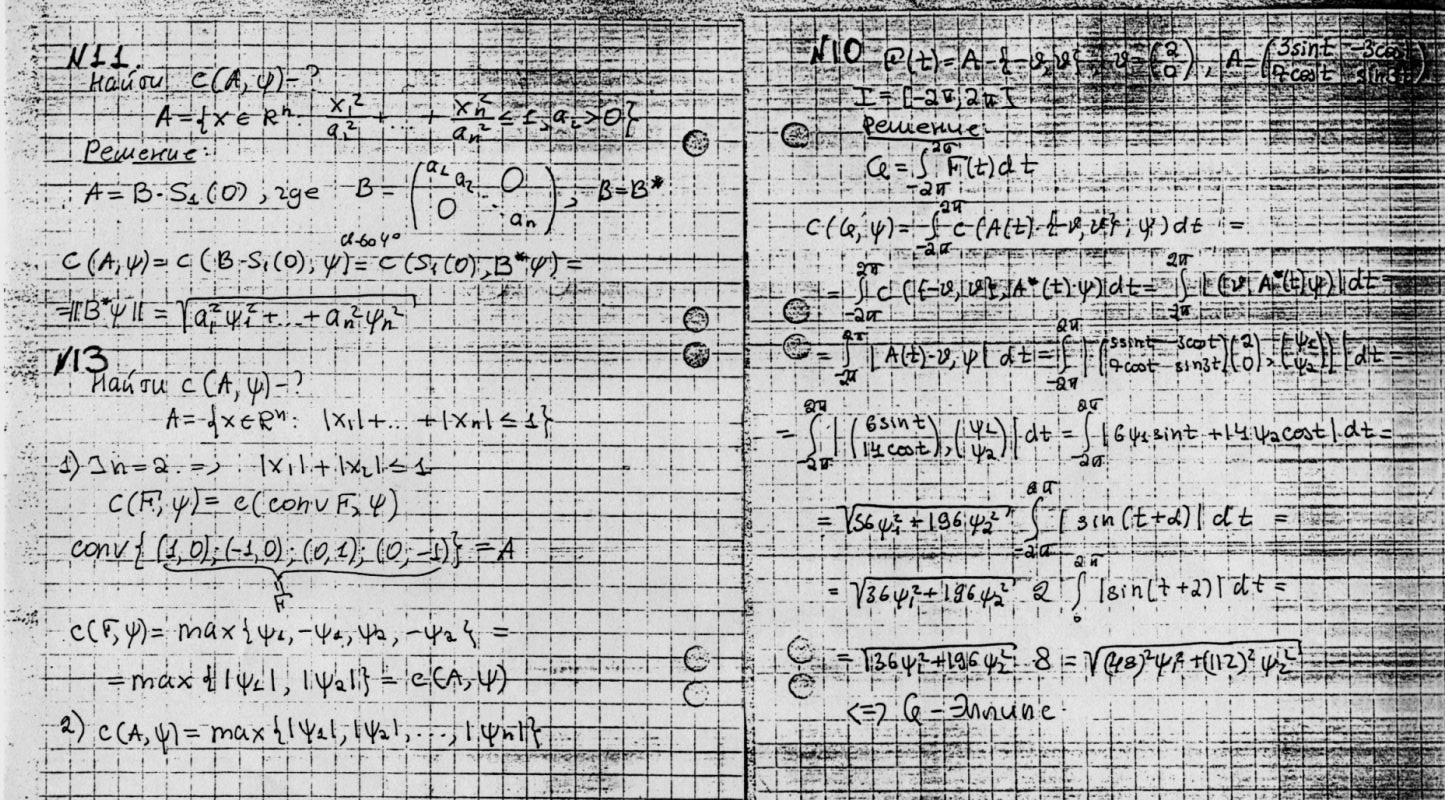 N11.
Найти c(A, ψ) - ?
A = {x ∈ Rⁿ: x₁²/a₁² + ... + xₙ²/aₙ² ≤ 1, a₂ > 0}
Решение:
A = B · S₁(0), где B = (a₁ a₂ 0 0 ⋱ aₙ), B = B*
св-во 4°
C(A, ψ) = c(B·S₁(0), ψ) = c(S₁(0), B*ψ) =
= ||B*ψ|| = √(a₁²ψ₁² + ... + aₙ²ψₙ²)
N13
Найти c(A, ψ) - ?
A = {x ∈ Rⁿ: |x₁| + ... + |xₙ| ≤ 1}
1) n = 2. => |x₁| + |x₂| ≤ 1
C(F, ψ) = c(conv F, ψ)
conv{(1, 0); (-1, 0); (0, 1); (0, -1)} = A
F
c(F, ψ) = max{ψ₁, -ψ₁, ψ₂, -ψ₂} =
= max{|ψ₁|, |ψ₂|} = c(A, ψ)
2) c(A, ψ) = max{|ψ₁|, |ψ₂|, ..., |ψn|}
N10 (t) = A · {-v, v}, v = (2 0), A = (3sint -3cost 7cost sin3t)
I = [-2π, 2π]
Решение:
G = ∫_{-2π}^{2π} F(t)dt
C(G, ψ) = ∫_{-2π}^{2π} c(A(t)·{-v, v}; ψ)dt =
= ∫_{-2π}^{2π} c({-v, v}, A*(t)·ψ)dt = ∫_{-2π}^{2π} |(v, A*(t)ψ)|dt =
= ∫_{-2π}^{2π} |A(t)·v, ψ| dt = ∫_{-2π}^{2π} |(3sint 3cost 7cost sin3t)(2 0), (ψ₁ ψ₂)| dt =
= ∫_{-2π}^{2π} |(6sint 14cost), (ψ₁ ψ₂)| dt = ∫_{-2π}^{2π} |6ψ₁sint + 14ψ₂cost| dt =
= √(36ψ₁² + 196ψ₂²) ∫_{-2π}^{2π} |sin(t+α)| dt =
= √(36ψ₁² + 196ψ₂²) 2 ∫_{0}^{2π} |sin(t+2)| dt =
= √(36ψ₁² + 196ψ₂²) · 8 = √((48)²ψ₁² + (112)²ψ₂²)
<=> G - Эллипс.